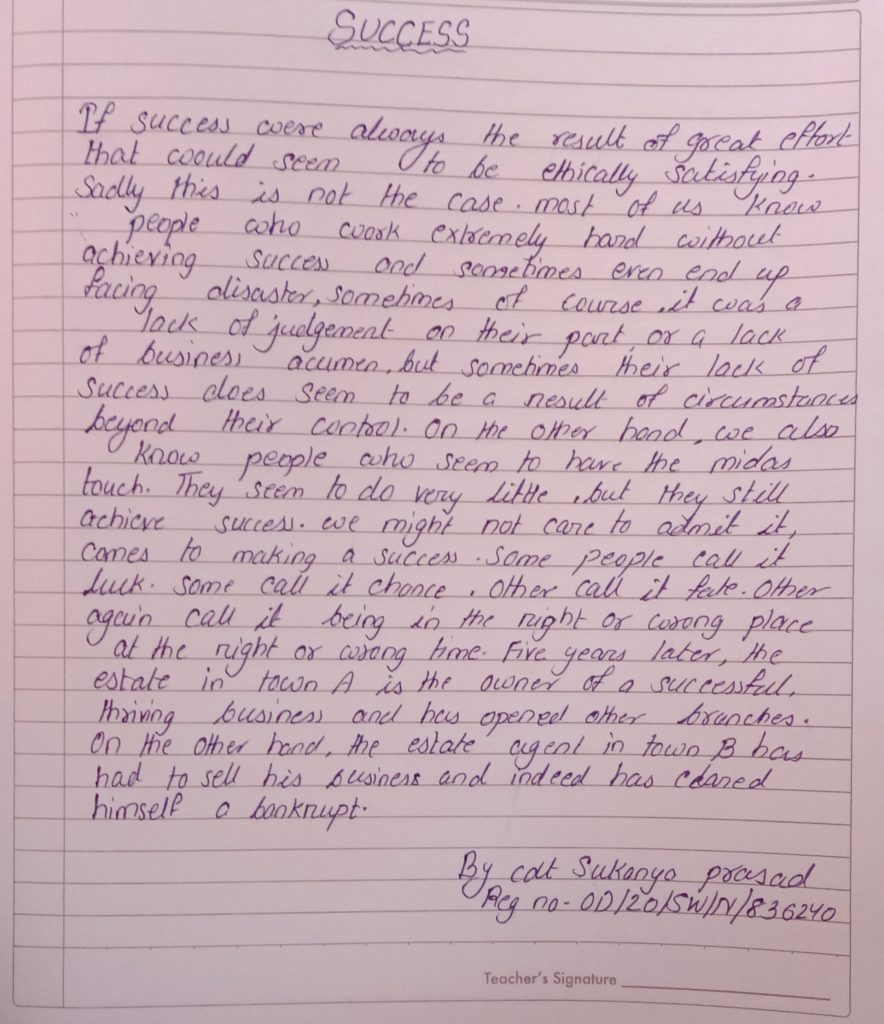 SUCCESS
If success were always the result of great effort
that would seem to be ethically satisfying.
Sadly this is not the case. most of us know
people who work extremely hard without
achieving success and sometimes even end up
facing disaster, sometimes of course, it was a
lack of judgement on their part, or a lack
of business acumen, but sometimes their lack of
success does seem to be a result of circumstances
beyond their control. On the other hand, we also
know people who seem to have the midas
touch. They seem to do very little, but they still
achieve success. we might not care to admit it,
comes to making a success. Some people call it
luck. some call it chance. Other call it fate. Other
again call it being in the right or wrong place
at the right or wrong time. Five years later, the
estate in town A is the owner of a successful,
thriving business and has opened other branches.
On the other hand, the estate agent in town B has
had to sell his business and indeed has
himself a bankrupt.
By cdt Sukanya prasad
Reg no- OD/20/SW/N/836240
Teacher's Signature